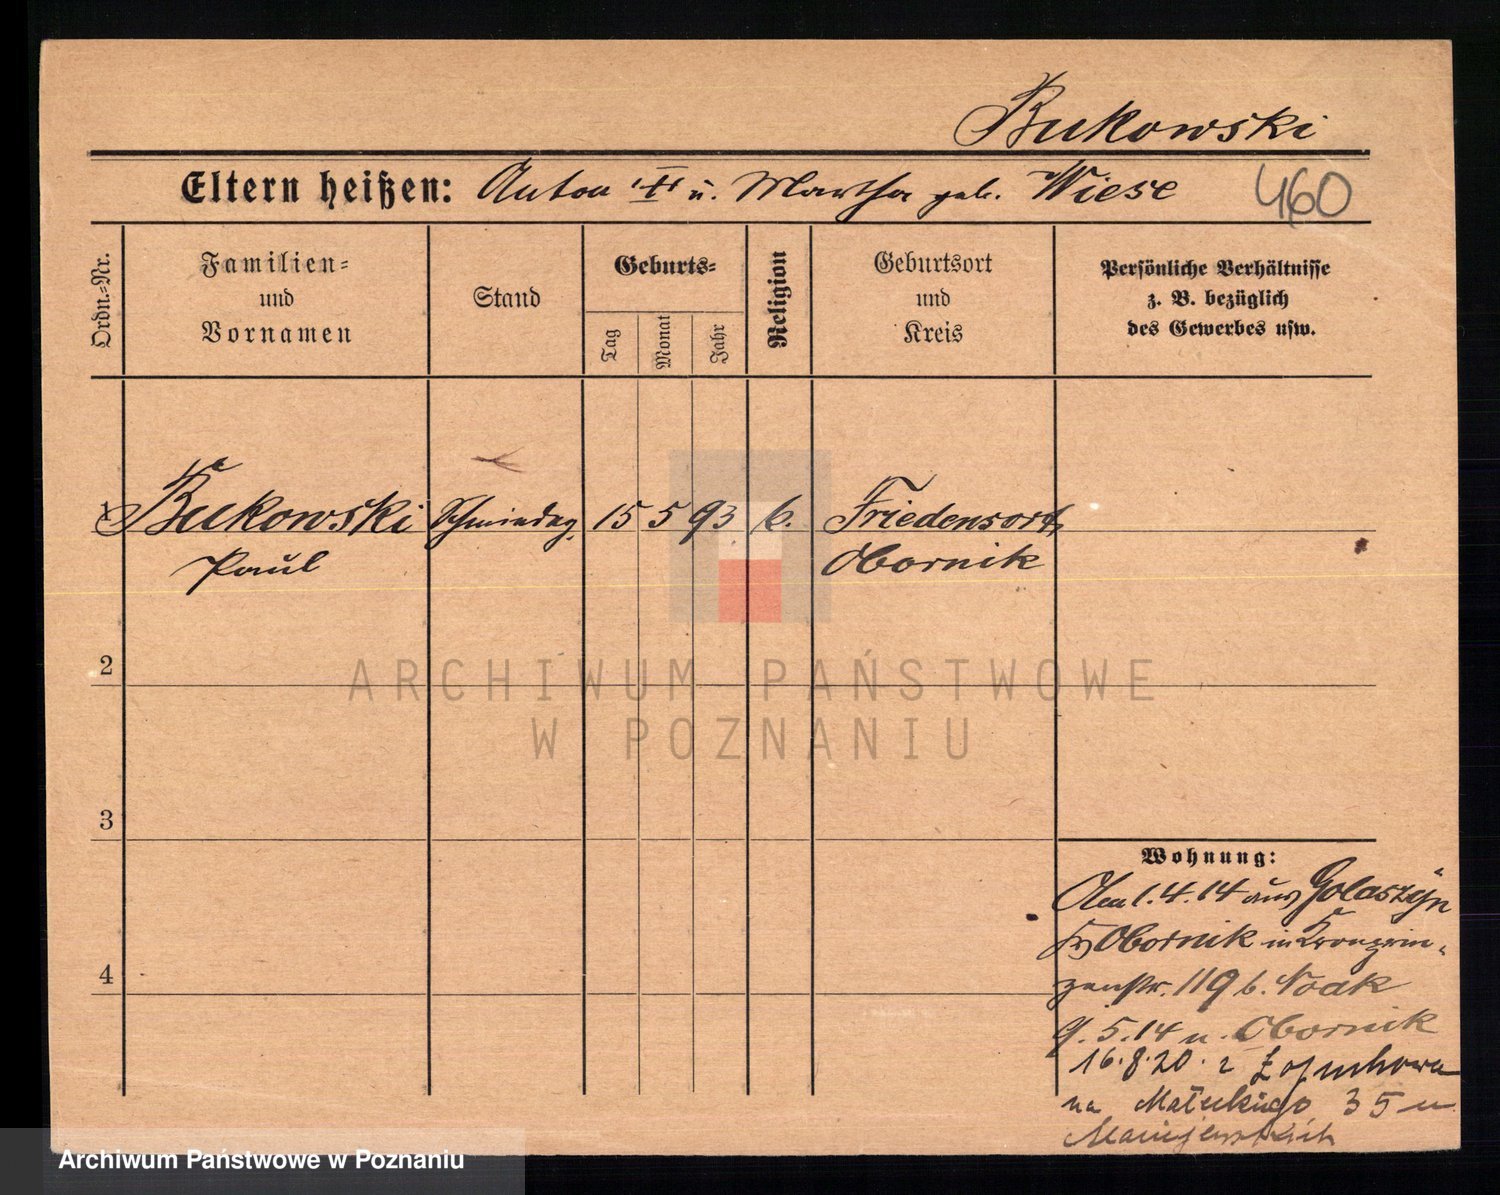 Bukowski
Eltern heißen: Anton II u. Martha geb. Wiese 460
Ordn.-Nr.
Familien-
und
Vornamen
Stand
Geburts-
Tag
Monat
Jahr
Religion
Geburtsort
und
Kreis
Persönliche Verhältnisse
z. B. bezüglich
des Gewerbes usw.
1 Bukowski 15 5 93 k. Friedensort,
Paul Obornik
2
3
4
ARCHIWUM PAŃSTWOWE
W POZNANIU
Wohnung:
1.4.14 aus Golaszyn
Obornik in Kronprin-
zenstr. 119 b. Noak
9.5.14 n. Obornik
16.8.20. z
na Małeckiego 35 u
Archiwum Państwowe w Poznaniu